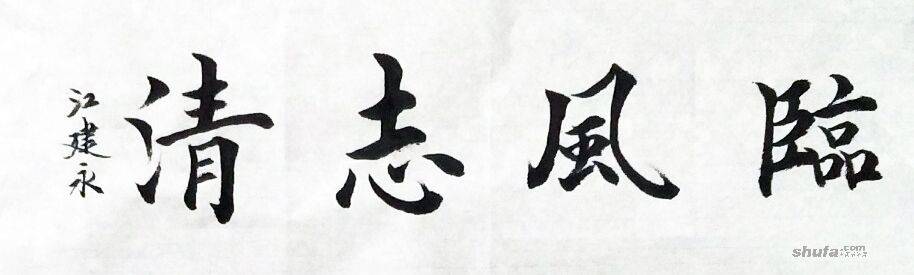 臨風志清
江建永
shufa.com